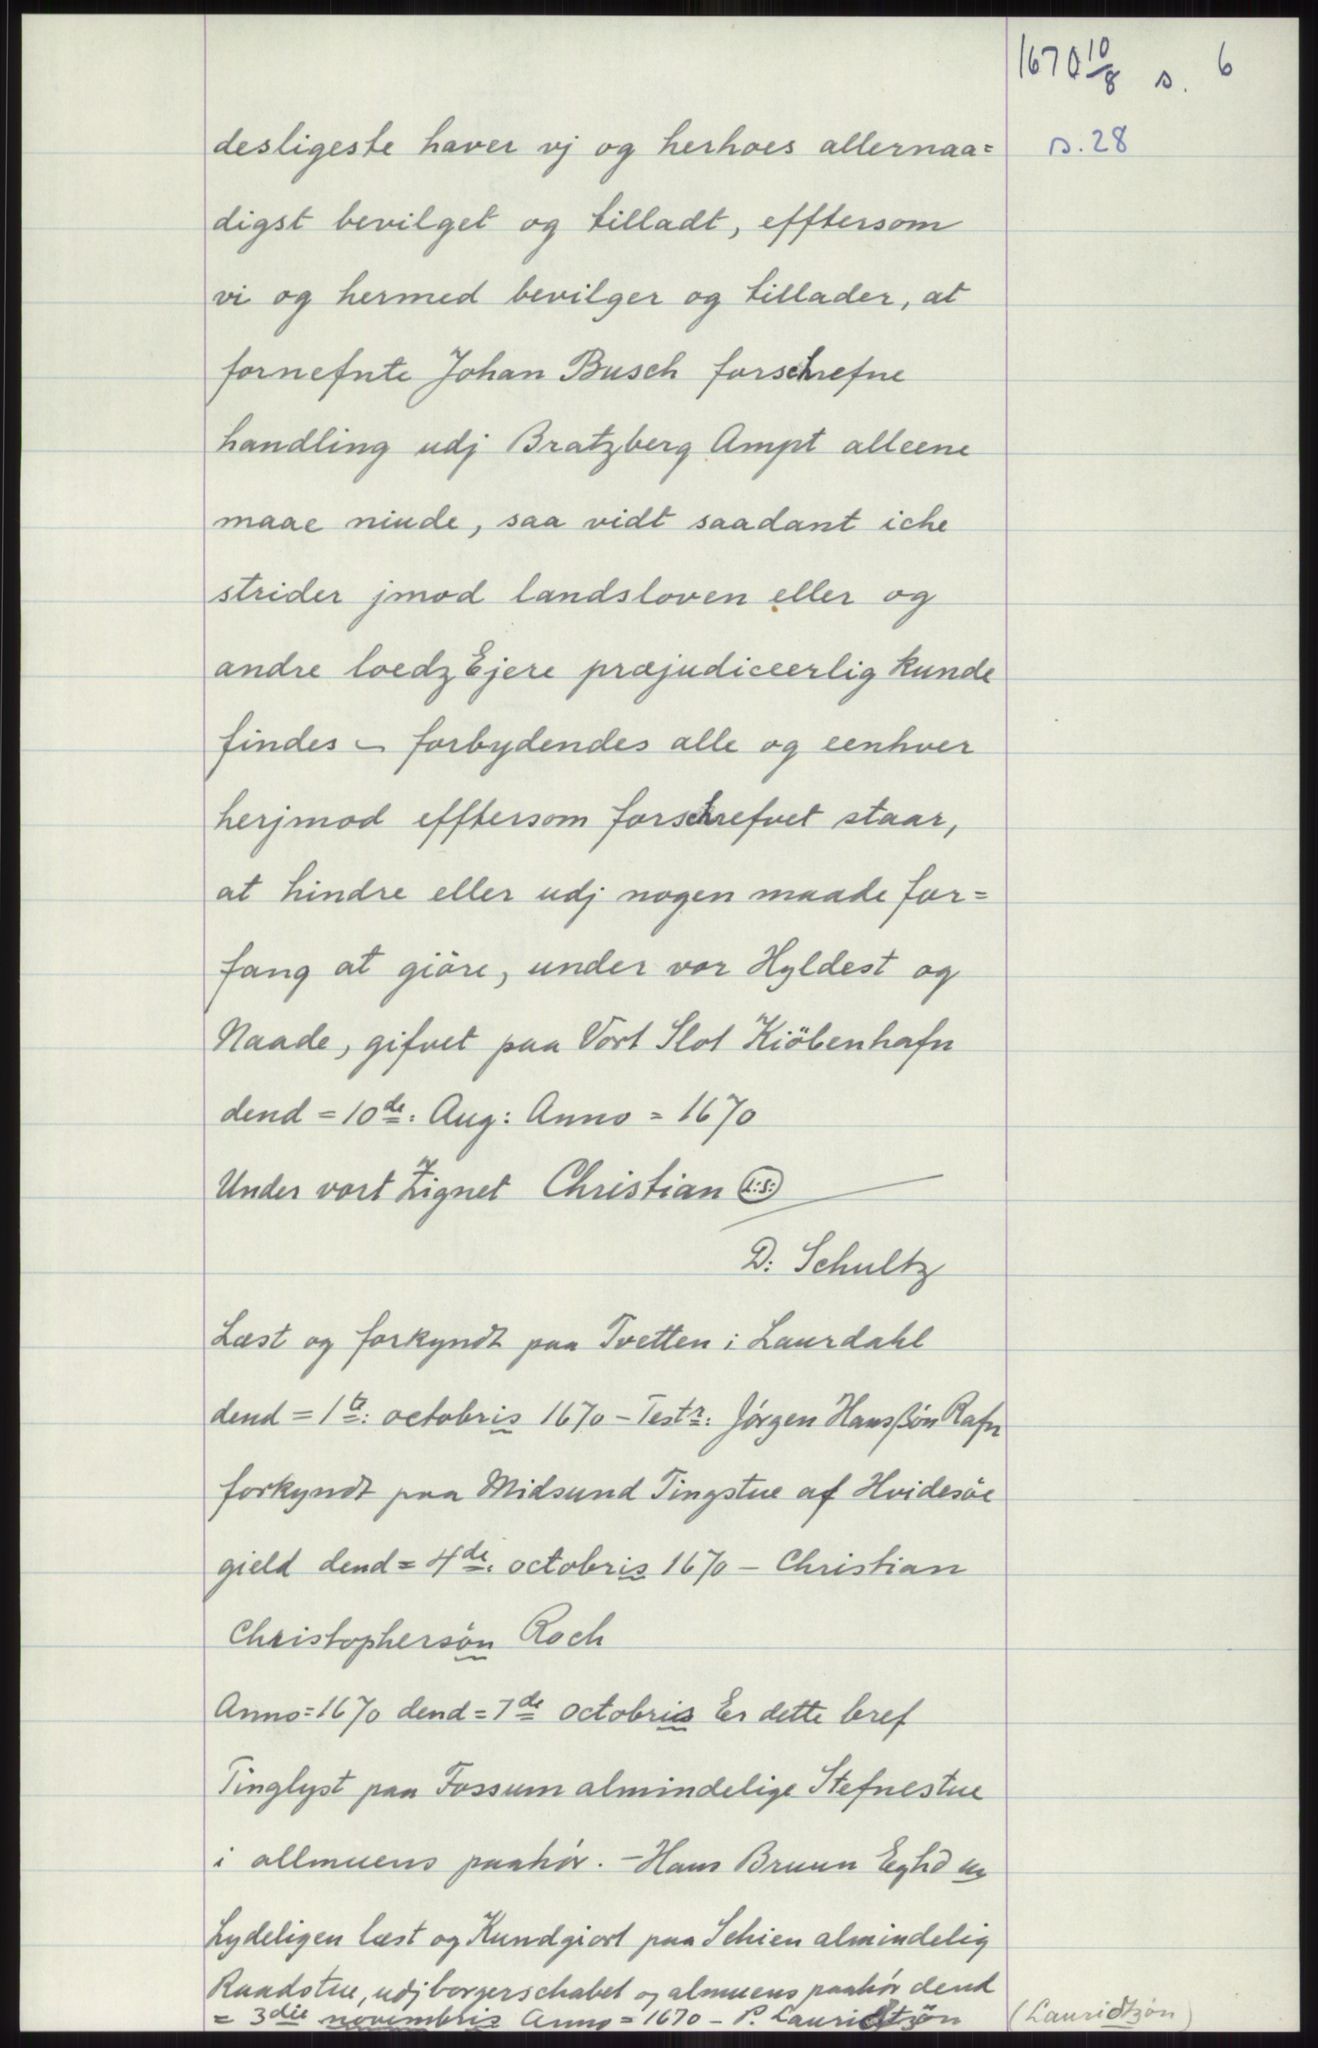 1670 10/8 s. 6
desligeste haver vj og herhoes allernaa=
s. 28
digst bevilget og tilladt, efftersom
vi og hermed bevilger og tillader, at
fornefnte Johan Busch forschrefne
handling udj Bratzberg Ampt alleene
maae niude, saa vidt saadant iche
strider jmod landsloven eller og
andre loedz Ejere præjudiceerlig kunde
findes – forbydendes alle og eenhver
herjmod efftersom forschrefvet staar,
at hindre eller udj nogen maade for=
fang at giöre, under vor Hyldest og
Naade, gifvet paa Vort Slot Kiöbenhafn
dend = 10de: Aug: Anno = 1670
Under vort Zignet Christian L:S:
D: Schultz
Læst og forkyndt paa Tvetten i Laurdahl
dend = 1te: octobris 1670 – Testr: Jörgen Hansßön Rafn
forkyndt paa Midsund Tingstue af Hvidesöe
gield dend = 4de: octobris 1670 – Christian
Christophersön Roch
Anno = 1670 dend = 7de octobris Er dette bref
Tinglyst paa Fossum almindelige Stefnestue
i allmuens paahör. – Hans Bruun Eghd
Lydeligen læst og Kundgiort paa Schien almindelig
Raadstue, udj borgerschabet og almuens paahör dend
= 3die novembris Anno = 1670 – P. Lauridtzön
(Lauridtzön)